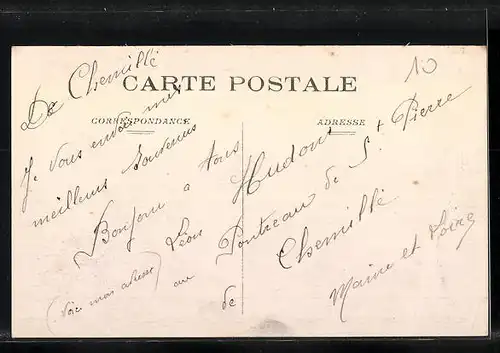 De Chemillé
CARTE POSTALE
10
CORRESPONDANCE
ADRESSE
Je vous envoie mes
meilleurs souvenirs
Bonjour a tous
(Voir mon adresse)
Léon Hudon
au Pontreau de St Pierre
de Chemillé
Maine et Loire